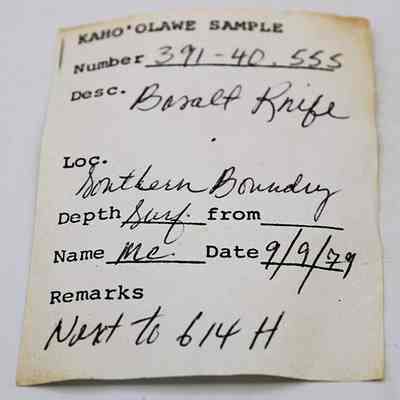 KAHO'OLAWE SAMPLE
Number 391-40.555
Desc. Basalt Knife
Loc.
Southern Boundry
Depth Surf. from
Name Mc. Date 9/9/79
Remarks
Next to 614 H